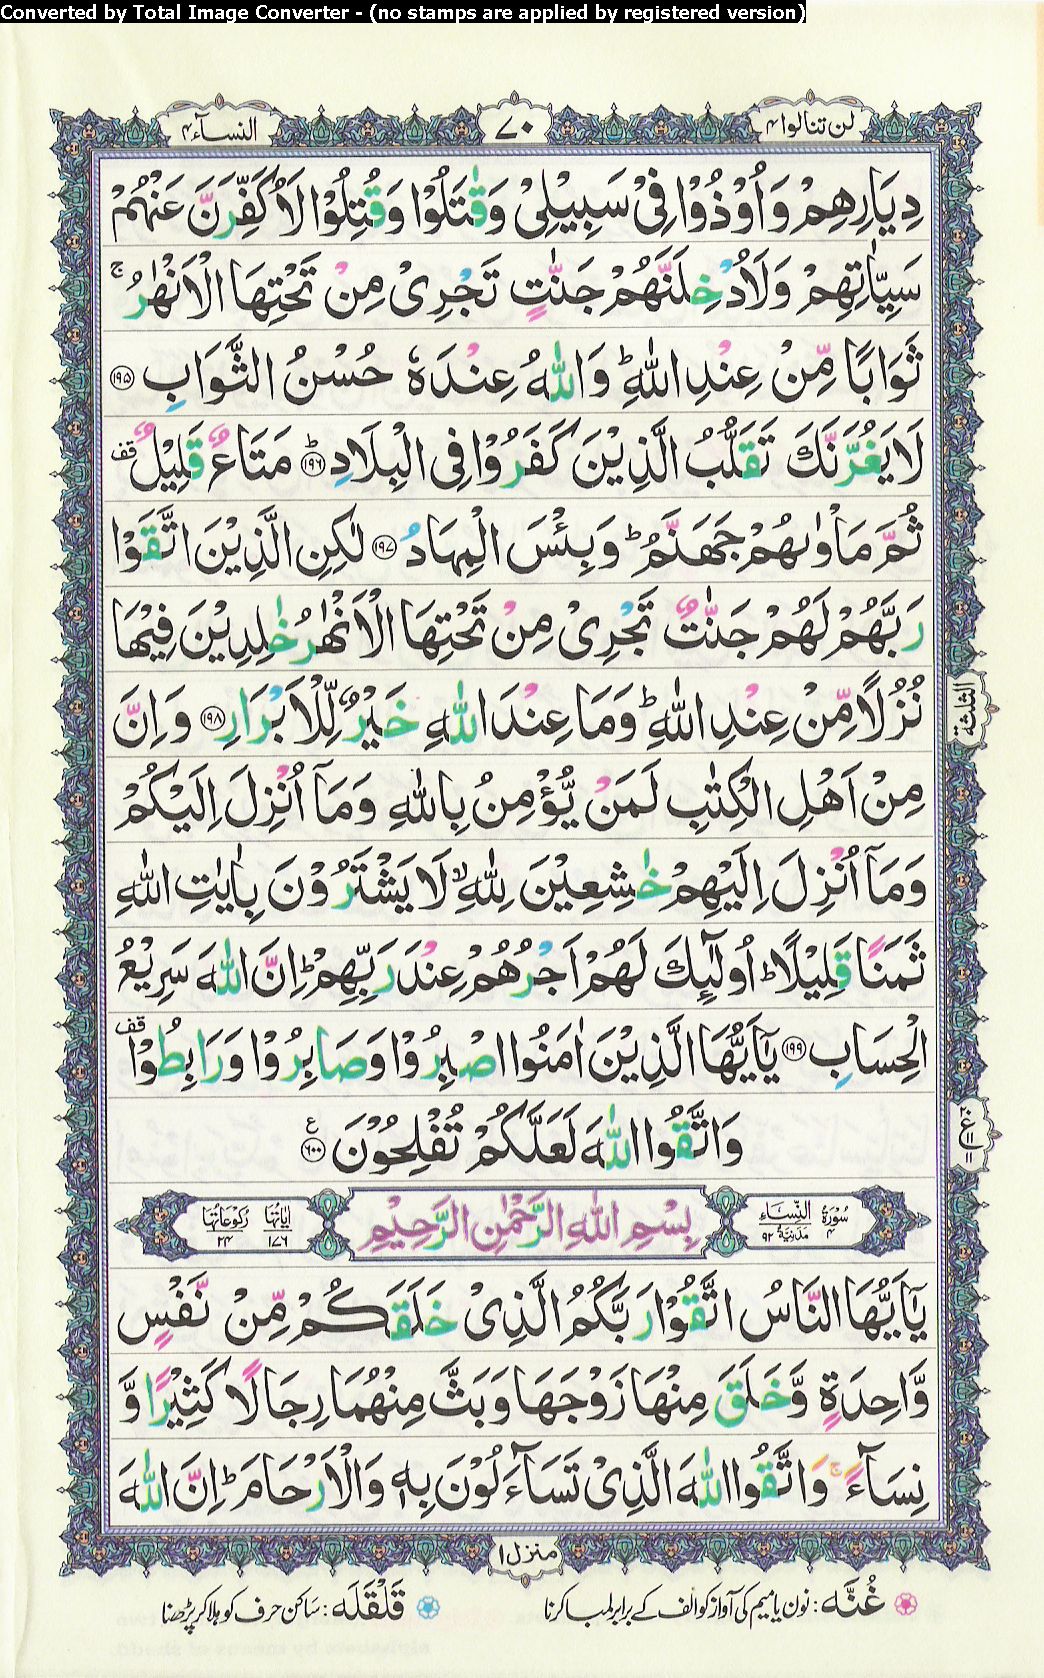 Converted by Total Image Converter - (no stamps are applied by registered version)
لن تنالوا ۴
۷۰
النسآء ۴
دِيَارِهِمْ وَاُوْذُوْا فِىْ سَبِيْلِىْ وَقٰتَلُوْا وَقُتِلُوْا لَاُكَفِّرَنَّ عَنْهُمْ
سَيِّاٰتِهِمْ وَلَاُدْخِلَنَّهُمْ جَنّٰتٍ تَجْرِىْ مِنْ تَحْتِهَا الْاَنْهٰرُ ۚ
ثَوَابًا مِّنْ عِنْدِ اللّٰهِ ؕ وَاللّٰهُ عِنْدَهٗ حُسْنُ الثَّوَابِ ﴿۱۹۵﴾
لَا يَغُرَّنَّكَ تَقَلُّبُ الَّذِيْنَ كَفَرُوْا فِى الْبِلَادِ ؕ﴿۱۹۶﴾ مَتَاعٌ قَلِيْلٌ قف
ثُمَّ مَاْوٰىهُمْ جَهَنَّمُ ؕ وَبِئْسَ الْمِهَادُ ﴿۱۹۷﴾ لٰكِنِ الَّذِيْنَ اتَّقَوْا
رَبَّهُمْ لَهُمْ جَنّٰتٌ تَجْرِىْ مِنْ تَحْتِهَا الْاَنْهٰرُ خٰلِدِيْنَ فِيْهَا
نُزُلًا مِّنْ عِنْدِ اللّٰهِ ؕ وَمَا عِنْدَ اللّٰهِ خَيْرٌ لِّلْاَبْرَارِ ﴿۱۹۸﴾ وَاِنَّ
مِنْ اَهْلِ الْكِتٰبِ لَمَنْ يُّؤْمِنُ بِاللّٰهِ وَمَآ اُنْزِلَ اِلَيْكُمْ
وَمَآ اُنْزِلَ اِلَيْهِمْ خٰشِعِيْنَ لِلّٰهِ ۙ لَا يَشْتَرُوْنَ بِاٰيٰتِ اللّٰهِ
ثَمَنًا قَلِيْلًا ؕ اُولٰٓئِكَ لَهُمْ اَجْرُهُمْ عِنْدَ رَبِّهِمْ ؕ اِنَّ اللّٰهَ سَرِيْعُ
الْحِسَابِ ﴿۱۹۹﴾ يٰٓاَيُّهَا الَّذِيْنَ اٰمَنُوا اصْبِرُوْا وَصَابِرُوْا وَرَابِطُوْا قف
وَاتَّقُوا اللّٰهَ لَعَلَّكُمْ تُفْلِحُوْنَ ﴿۲۰۰﴾ ع
الثلثة
ع ۲۰ ۱۱ ۱۱
سُوْرَةُ النِّسَاءِ ۴ مَدَنِيَّةٌ ۹۲
بِسْمِ اللّٰهِ الرَّحْمٰنِ الرَّحِيْمِ
اٰيَاتُهَا ۱۷۶ رُكُوْعَاتُهَا ۲۴
يٰٓاَيُّهَا النَّاسُ اتَّقُوْا رَبَّكُمُ الَّذِىْ خَلَقَكُمْ مِّنْ نَّفْسٍ
وَّاحِدَةٍ وَّخَلَقَ مِنْهَا زَوْجَهَا وَبَثَّ مِنْهُمَا رِجَالًا كَثِيْرًا وَّ
نِسَآءً ۚ وَاتَّقُوا اللّٰهَ الَّذِىْ تَسَآءَلُوْنَ بِهٖ وَالْاَرْحَامَ ؕ اِنَّ اللّٰهَ
منزل ۱
غُنَّه: نون یا میم کی آواز کو الف کے برابر لمبا کرنا
قَلْقَلَه: ساکن حرف کو ہلا کر پڑھنا